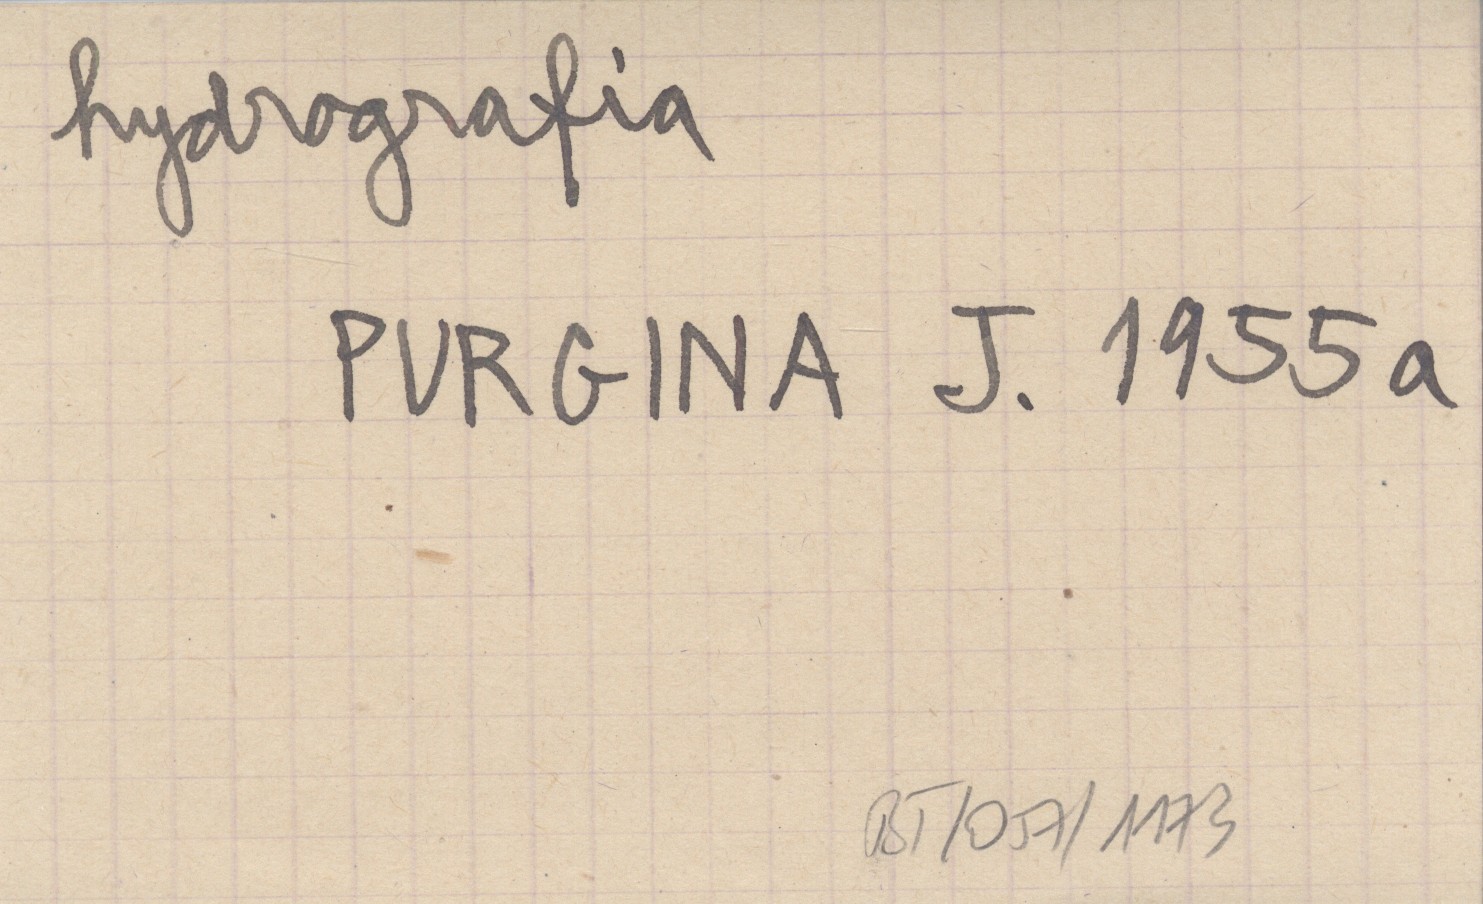 hydrografia
PURGINA J. 1955a
BT/057/1173